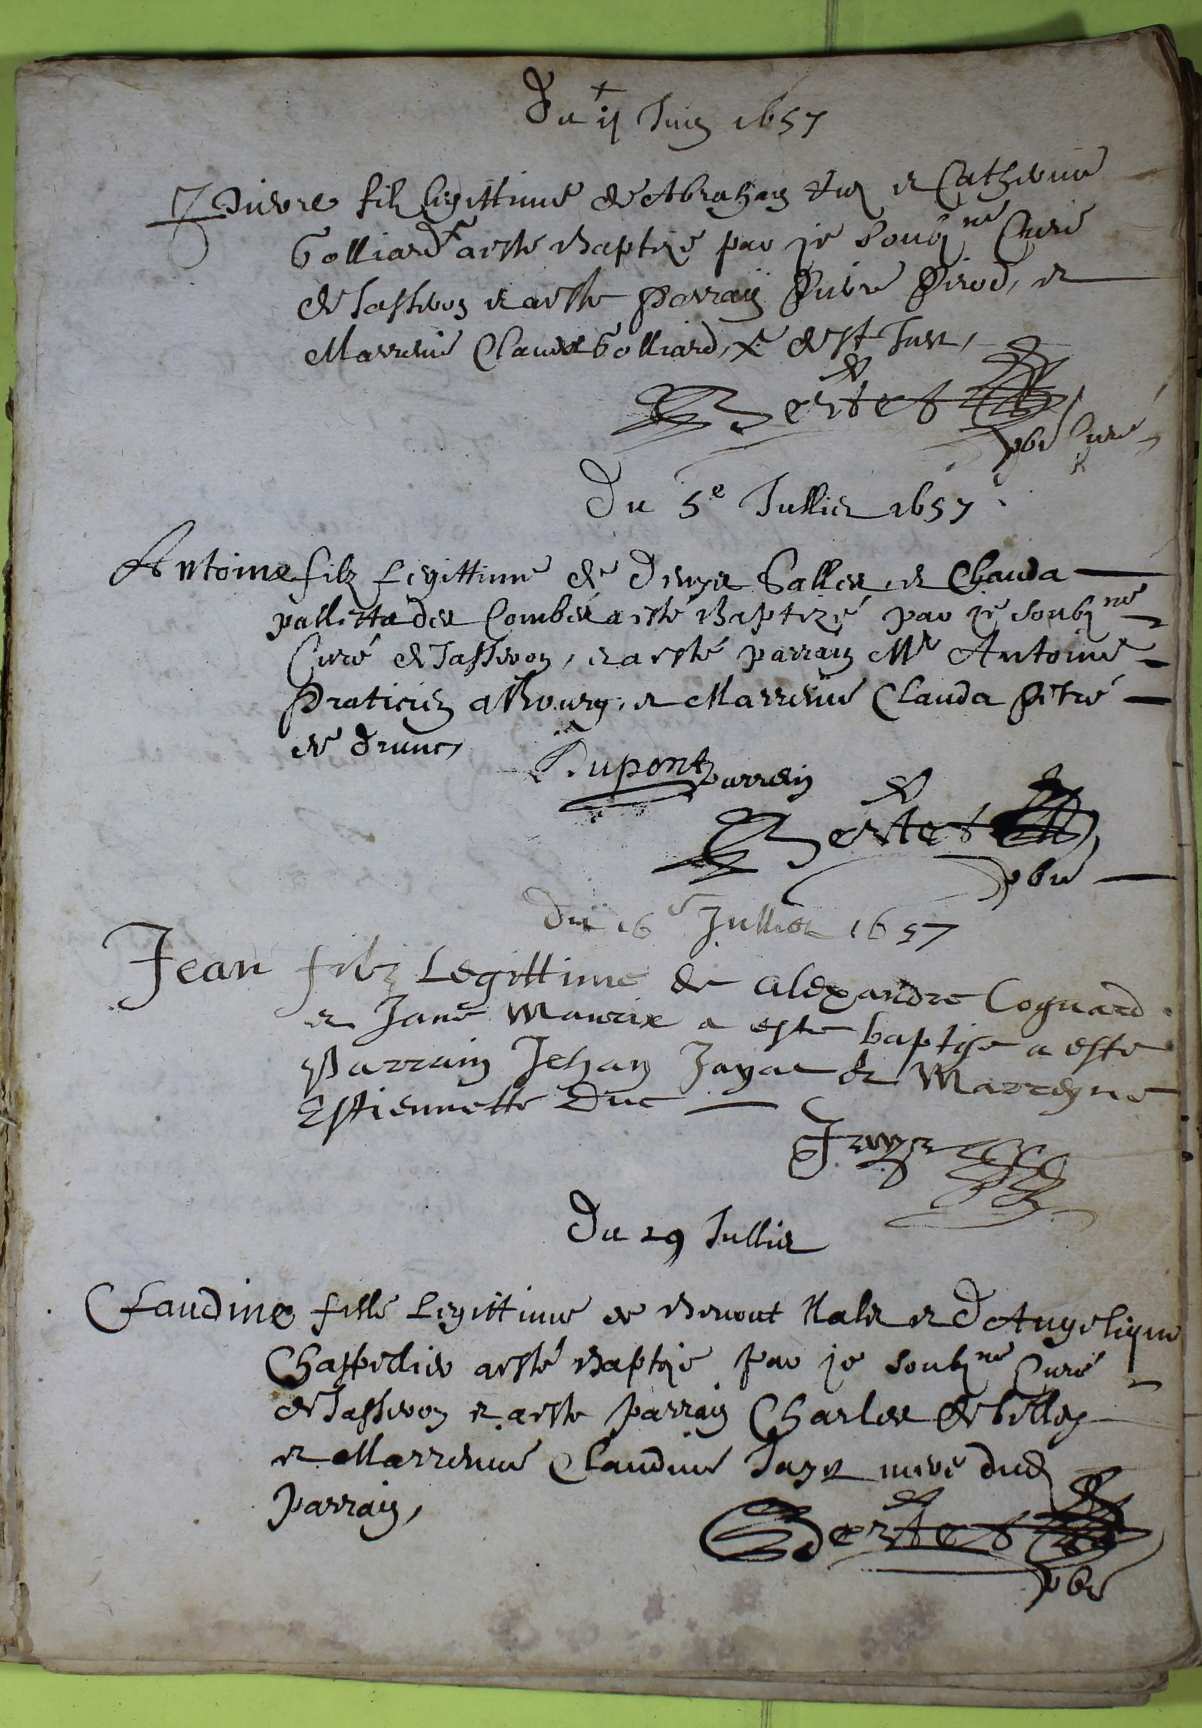 Du ij Juin 1657
Pierre filz legittime de Abraham et Catherine
Golliard a esté Baptizé par je soubz.ne Curé
de Jasseron et a esté Parrain Pierre Pirod, et
Marreine Claude Golliard, de St Just,
Bertet
pbre Curé
Du 5e Jullier 1657
Antoine filz Legittime de Denys Galler et Clauda
pallette des Combes a esté Baptizé par je soubz.ne
Curé de Jasseron, et a esté parrain Mr Antoine
Praticien a Bourg, et Marreine Clauda Petré
de Drune,
Dupont parrein
Bertet
pbre
Du 16e Jullier 1657
Jean filz Legittime de Alexandre Cognard
et Jane Maurix a este baptise a este
Parrain Jehan Jayar et Marregne
Estiennette Duc
Du 29 Jullier
Claudine fille Legittime de Benoit et d'Angelique
Chappelier a esté Baptizé par je soubz.ne Curé
de Jasseron et a esté Parrain Charles
et Marreine Claudine mere dud
Parrain,
Bertet
pbre